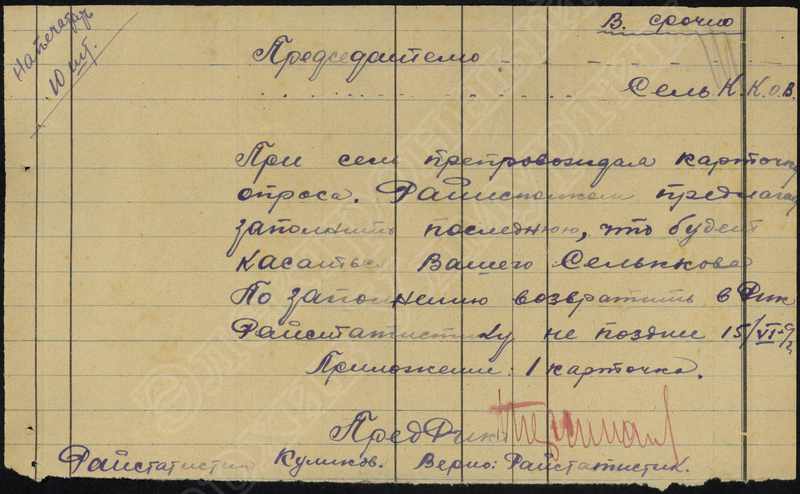 В. срочно
Напечатать
10 шт.
Председателю
Сель К.К.О.В.
При сем препровождая карточку
опроса. Райисполком предлагает
заполнить последнюю, что будет
касаться Вашего Сельккова
По заполнению возвратить в Рик
Райстатистику не поздне 15/VI-
Приложение: 1 карточка.
ПредРика
Райстатистик Куликов. Верно: Райстатистик.